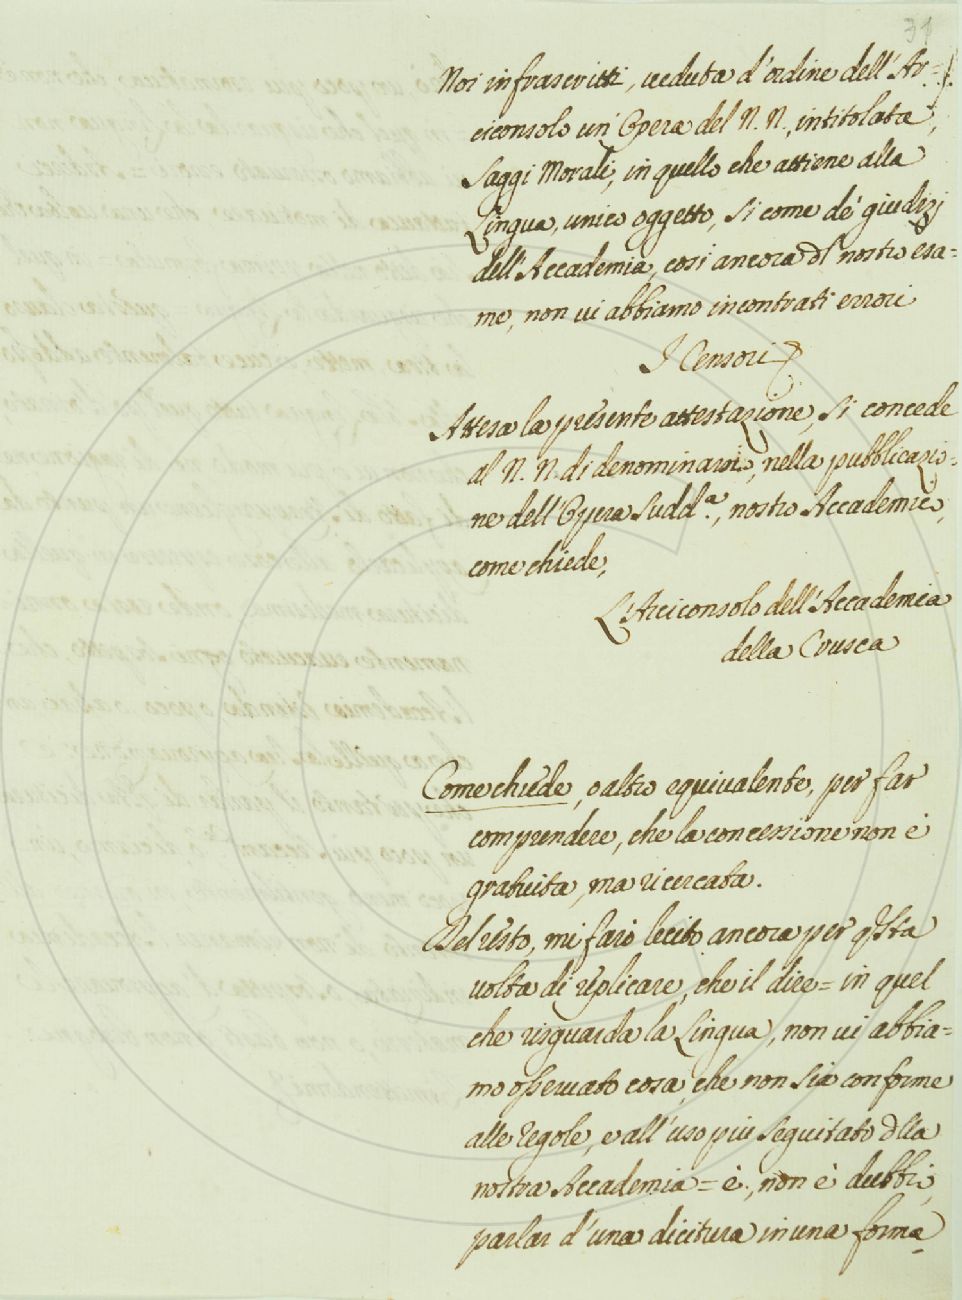 31
Noi infrascritti, veduta d'ordine dell'Ar=
ciconsolo un' Opera del N. N., intitolata,
Saggi Morali, in quello che attiene alla
Lingua, unico oggetto, si come de' giudizj
dell'Accademia, così ancora dl nostro esa=
me, non vi abbiamo incontrati errori
I Censori
Attesa la presente attestazione, si concede
al N. N. di denominarsi, nella pubblicazio=
ne dell'Opera Sudd.ª, nostro Accademico,
come chiede,
L'Arciconsolo dell'Accademia
della Crusca
Come chiede, o altro equivalente, per far
comprendere, che la concessione non è
gratuita, ma ricercata.
Del resto, mi farò lecito ancora per qsta
volta di replicare, che il dire= in quel
che risguarda la Lingua, non vi abbia=
mo osservato cosa, che non sia conforme
alle regole, e all'uso piu seguitato dlla
nostra Accademia= è, non è dubbio,
parlar d'una dicitura in una forma